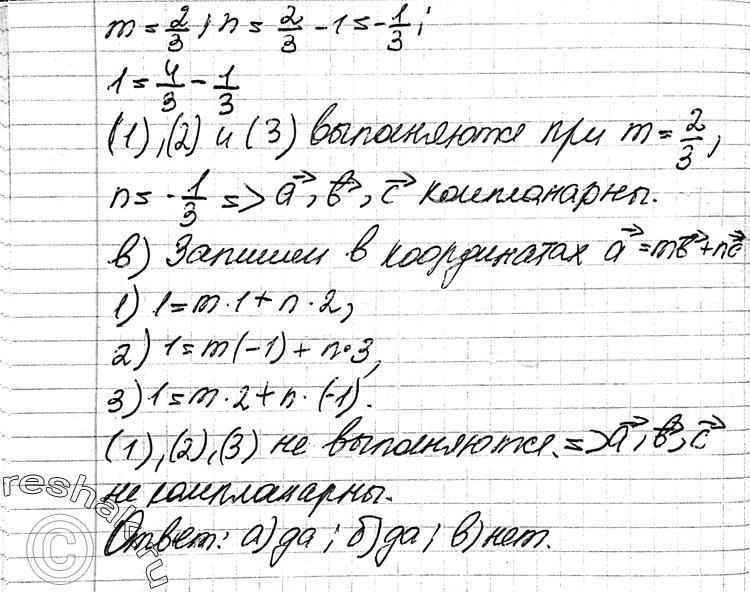 m = 2/3; n = 2/3 - 1 = -1/3;
1 = 4/3 - 1/3
(1), (2) и (3) выполняются при m = 2/3,
n = -1/3 => a⃗, b⃗, c⃗ компланарны.
в) Запишем в координатах a⃗ = mb⃗ + nc⃗
1) 1 = m · 1 + n · 2,
2) 1 = m(-1) + n · 3,
3) 1 = m · 2 + n · (-1).
(1), (2), (3) не выполняются. => a⃗, b⃗, c⃗
не компланарны.
Ответ: а) да; б) да; в) нет.
reshak.ru
©